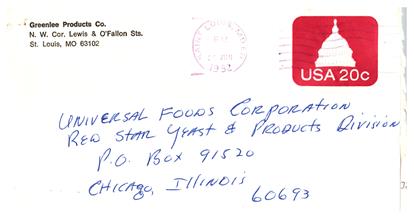 Greenlee Products Co.
N. W. Cor. Lewis & O'Fallon Sts.
St. Louis, MO 63102
SAINT LOUIS
PM
1982
USA 20c
UNIVERSAL FOODS CORPORATION
RED STAR YEAST & PRODUCTS DIVISION
P.O. BOX 91520
CHICAGO, ILLINOIS
60693